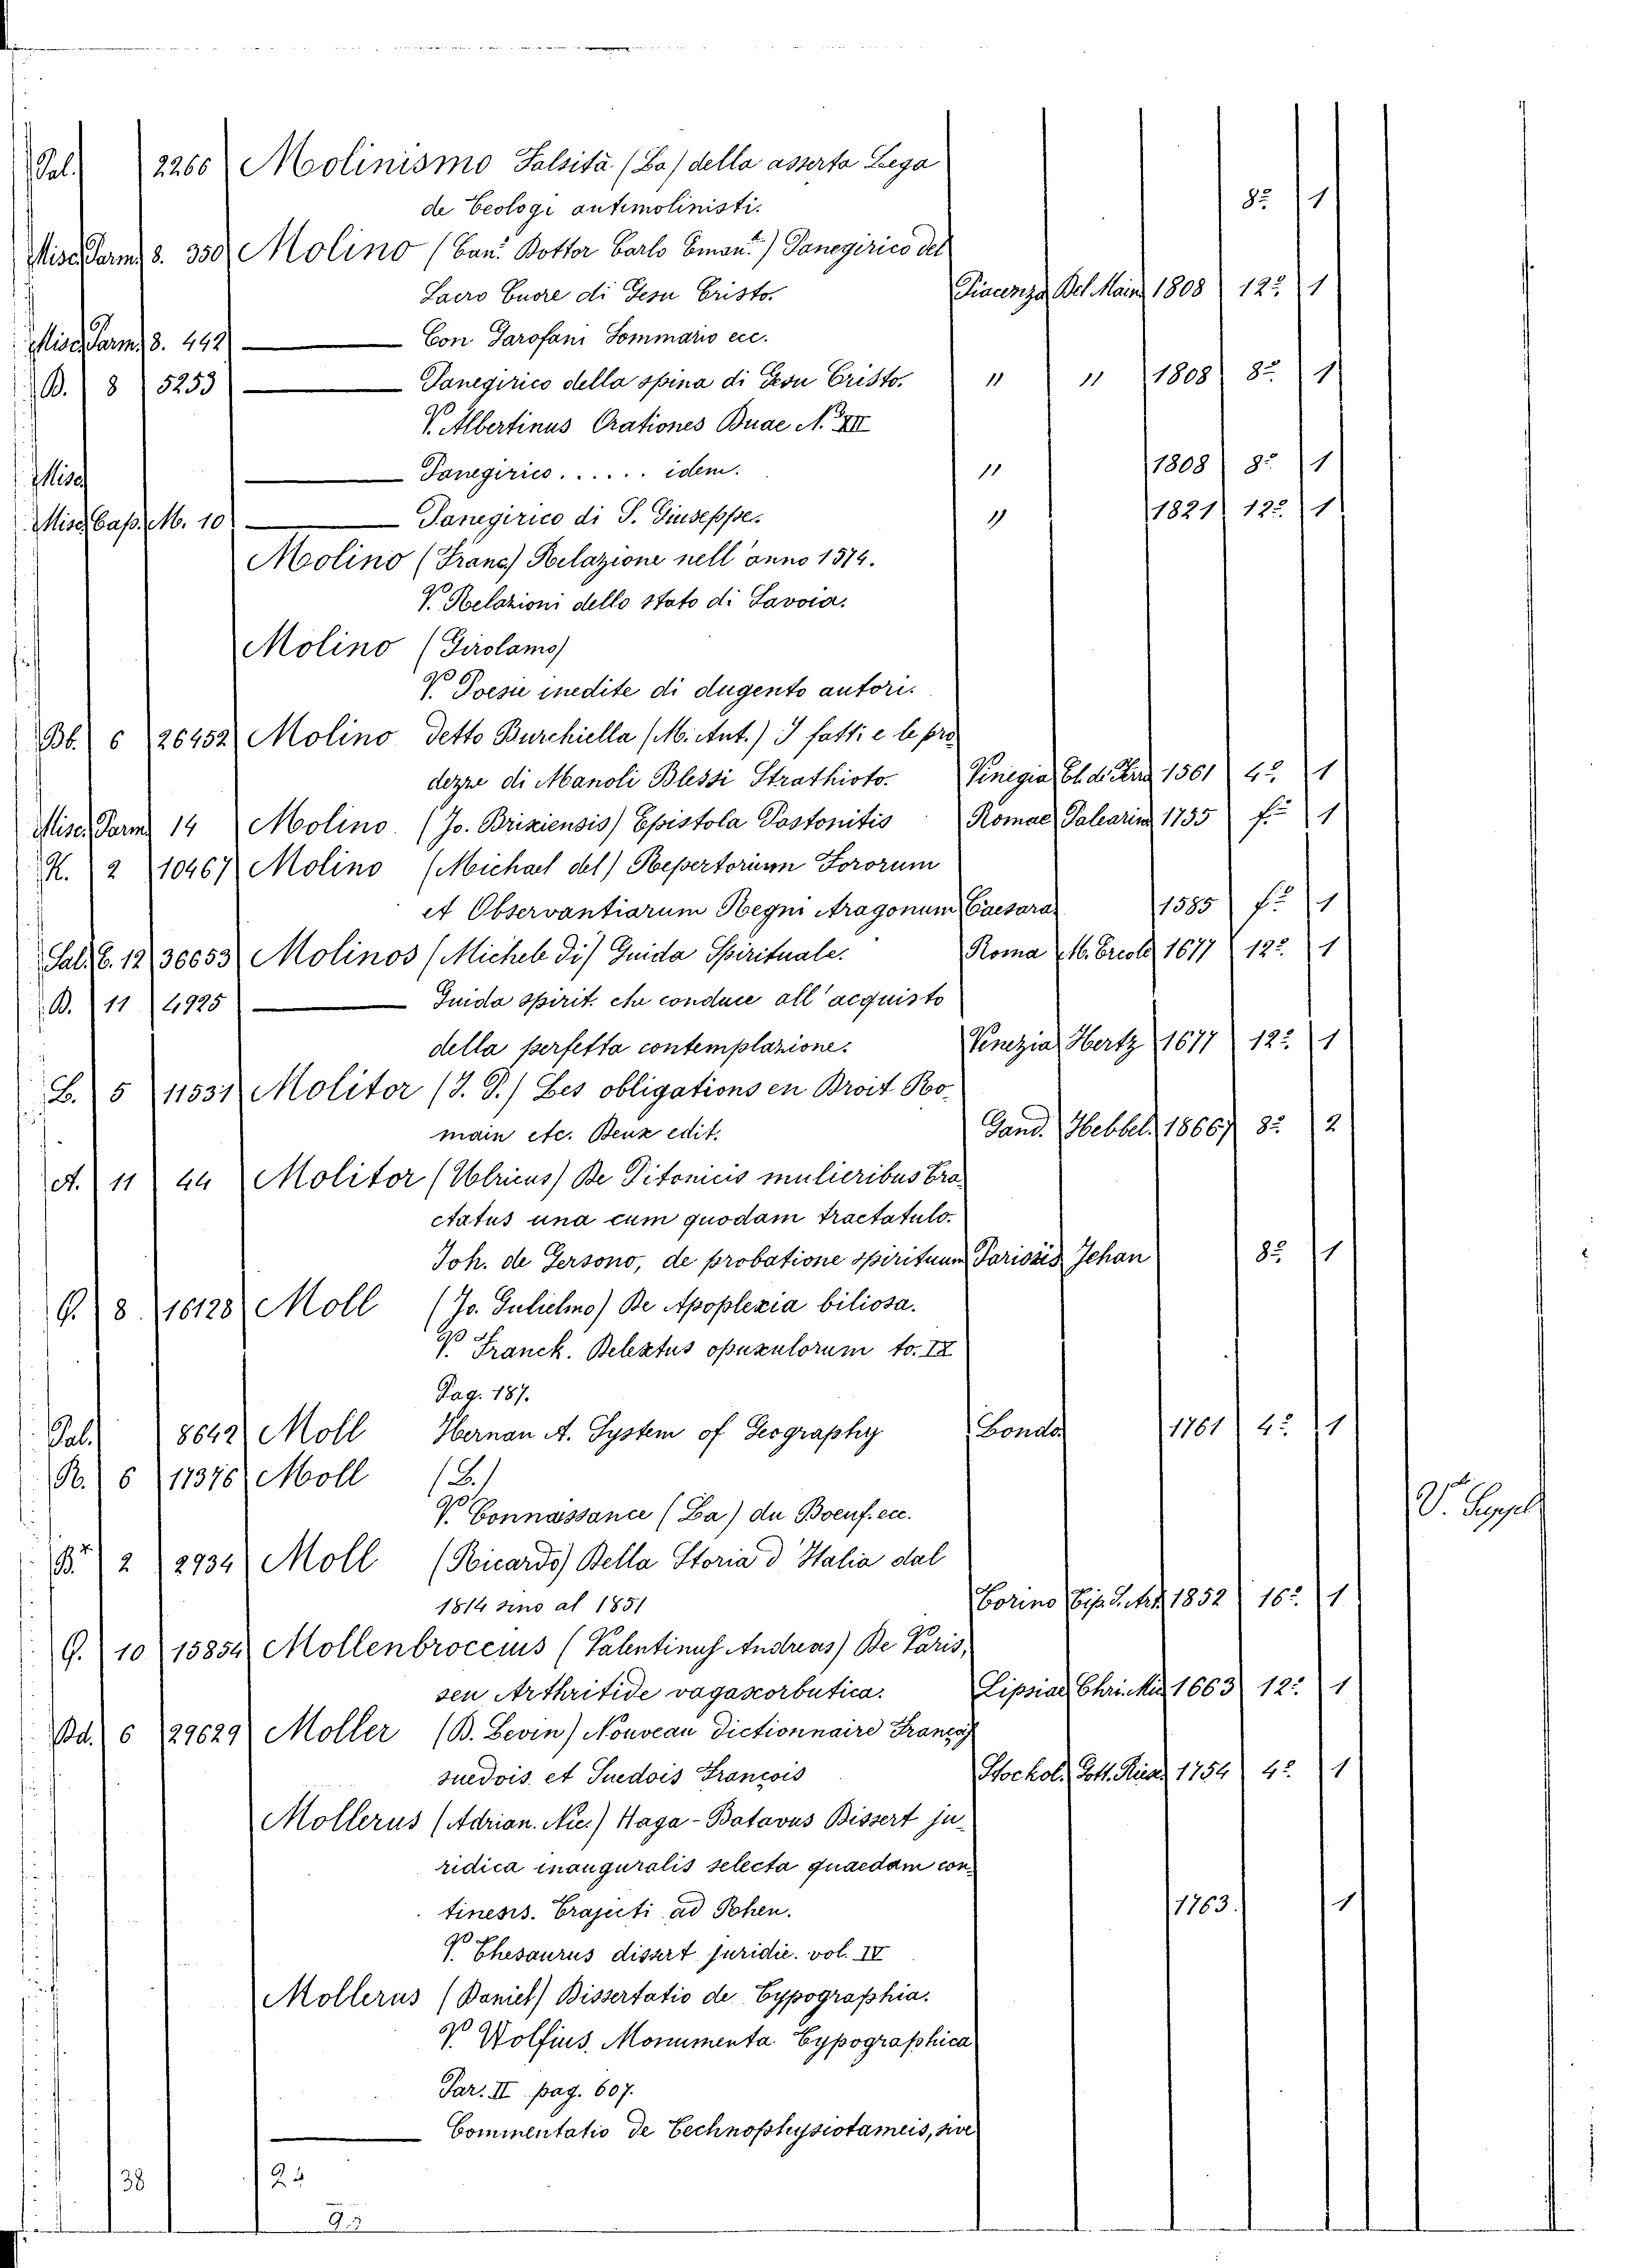 Pal. 2266 Molinismo Falsità (La) della asserta Lega
de Teologi antimolinisti. 8º 1
Misc. Parm. 8. 350 Molino (Can. Dottor Carlo Eman.) Panegirico del
Sacro Cuore di Gesu Cristo. Piacenza Del Main 1808 12º 1
Misc. Parm. 8. 442 Con Garofani Sommario ecc.
B. 8 5253 Panegirico della spina di Gesu Cristo. " " 1808 8º 1
V. Albertinus Orationes Duae N. XII
Misc Panegirico...... idem. " 1808 8º 1
Misc. Cap. M. 10 Panegirico di S. Giuseppe. " 1821 12º 1
Molino (Franc) Relazione nell'anno 1574.
V. Relazioni dello stato di Savoia.
Molino (Girolamo)
V. Poesie inedite di dugento autori.
Bb. 6 26452 Molino detto Burchiella (M. Ant.) I fatti e le pro
dezze di Manoli Blessi Strathioto. Vinegia 1561 4º 1
Misc. Parm 14 Molino. (Jo. Brixiensis) Epistola Postonitis Romae Palearin 1735 fº 1
K. 2 10467 Molino (Michael del) Repertorium Fororum
et Observantiarum Regni Aragonum Caesara 1585 fº 1
Sal. C. 12 36653 Molinos (Michele Di) Guida Spirituale. Roma M. Ercole 1677 12º 1
B. 11 4925 Guida spirit. che conduce all'acquisto
della perfetta contemplazione. Venezia Hertz 1677 12º 1
L. 5 11531 Molitor (J. P.) Les obligations en Droit Ro-
main etc. Deux edit. Gand. Hebbel. 1866/7 8º 2
A. 11 44 Molitor (Ulricus) De Pitonicis mulieribus Tra-
ctatus una cum quodam tractatulo.
Joh. de Gersono, de probatione spirituum Parisiis Jehan 8º 1
G. 8. 16128 Moll (Jo. Gulielmo) De Apoplexia biliosa.
V. Franck. Delextus opuxulorum to. IX
Pag. 187.
Pal. 8642 Moll Hernan A. System of Geography Londo 1761 4º 1
R. 6 17376 Moll (L.)
V. Connaissance (La) du Boeuf. ecc.
2 2934 Moll (Ricardo) Della Storia d'Italia dal
1814 sino al 1851 Torino Tip. S. Art. 1852 16º 1
G. 10 15854 Mollenbroccius (Valentinus Andreas) De Varis,
seu Arthritide vagascorbutica. Lipsiae Chri. Mic 1663 12º 1
Bd. 6 29629 Moller (B. Levin) Nouveau Dictionnaire Françai
suedois et Suedois Francois Stockol. Gott. 1754 4º 1
Mollerus (Adrian. Nic.) Haga-Batavus Dissert ju-
ridica inauguralis selecta quaedam con-
tinens. Trajecti ad Rhen. 1763. 1
V. Thesaurus dissert juridic. vol. IV
Mollerus (Daniel) Dissertatio de Typographia.
V. Wolfius. Monumenta Typographica
Par. II pag. 607.
Commentatio de Technophysiotameis, sive
38 24